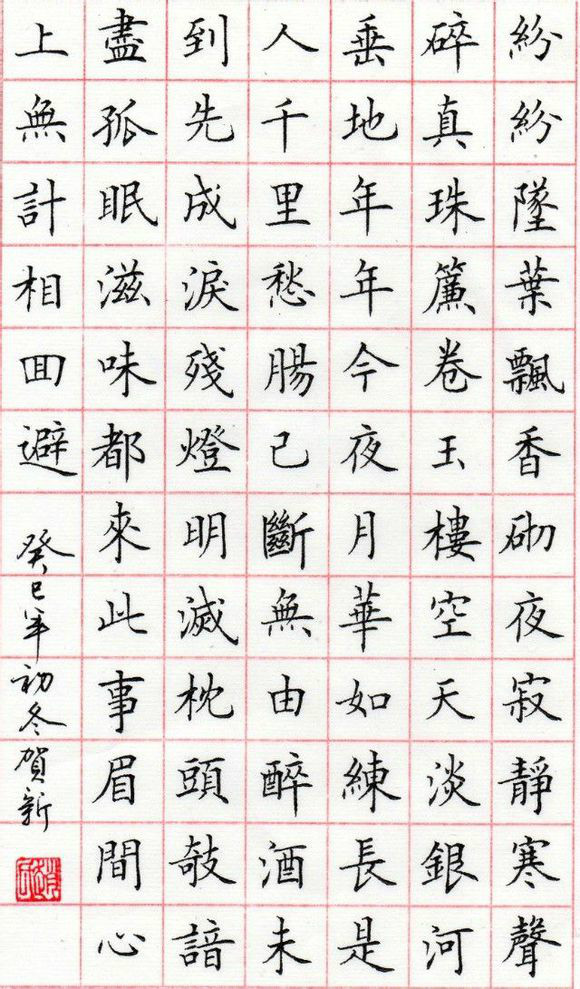 紛紛墜葉飄香砌夜寂靜寒聲
碎真珠簾卷玉樓空天淡銀河
垂地年年今夜月華如練長是
人千里愁腸已斷無由醉酒未
到先成淚殘燈明滅枕頭敧諳
盡孤眠滋味都來此事眉間心
上無計相囬避
癸巳年初冬賀新